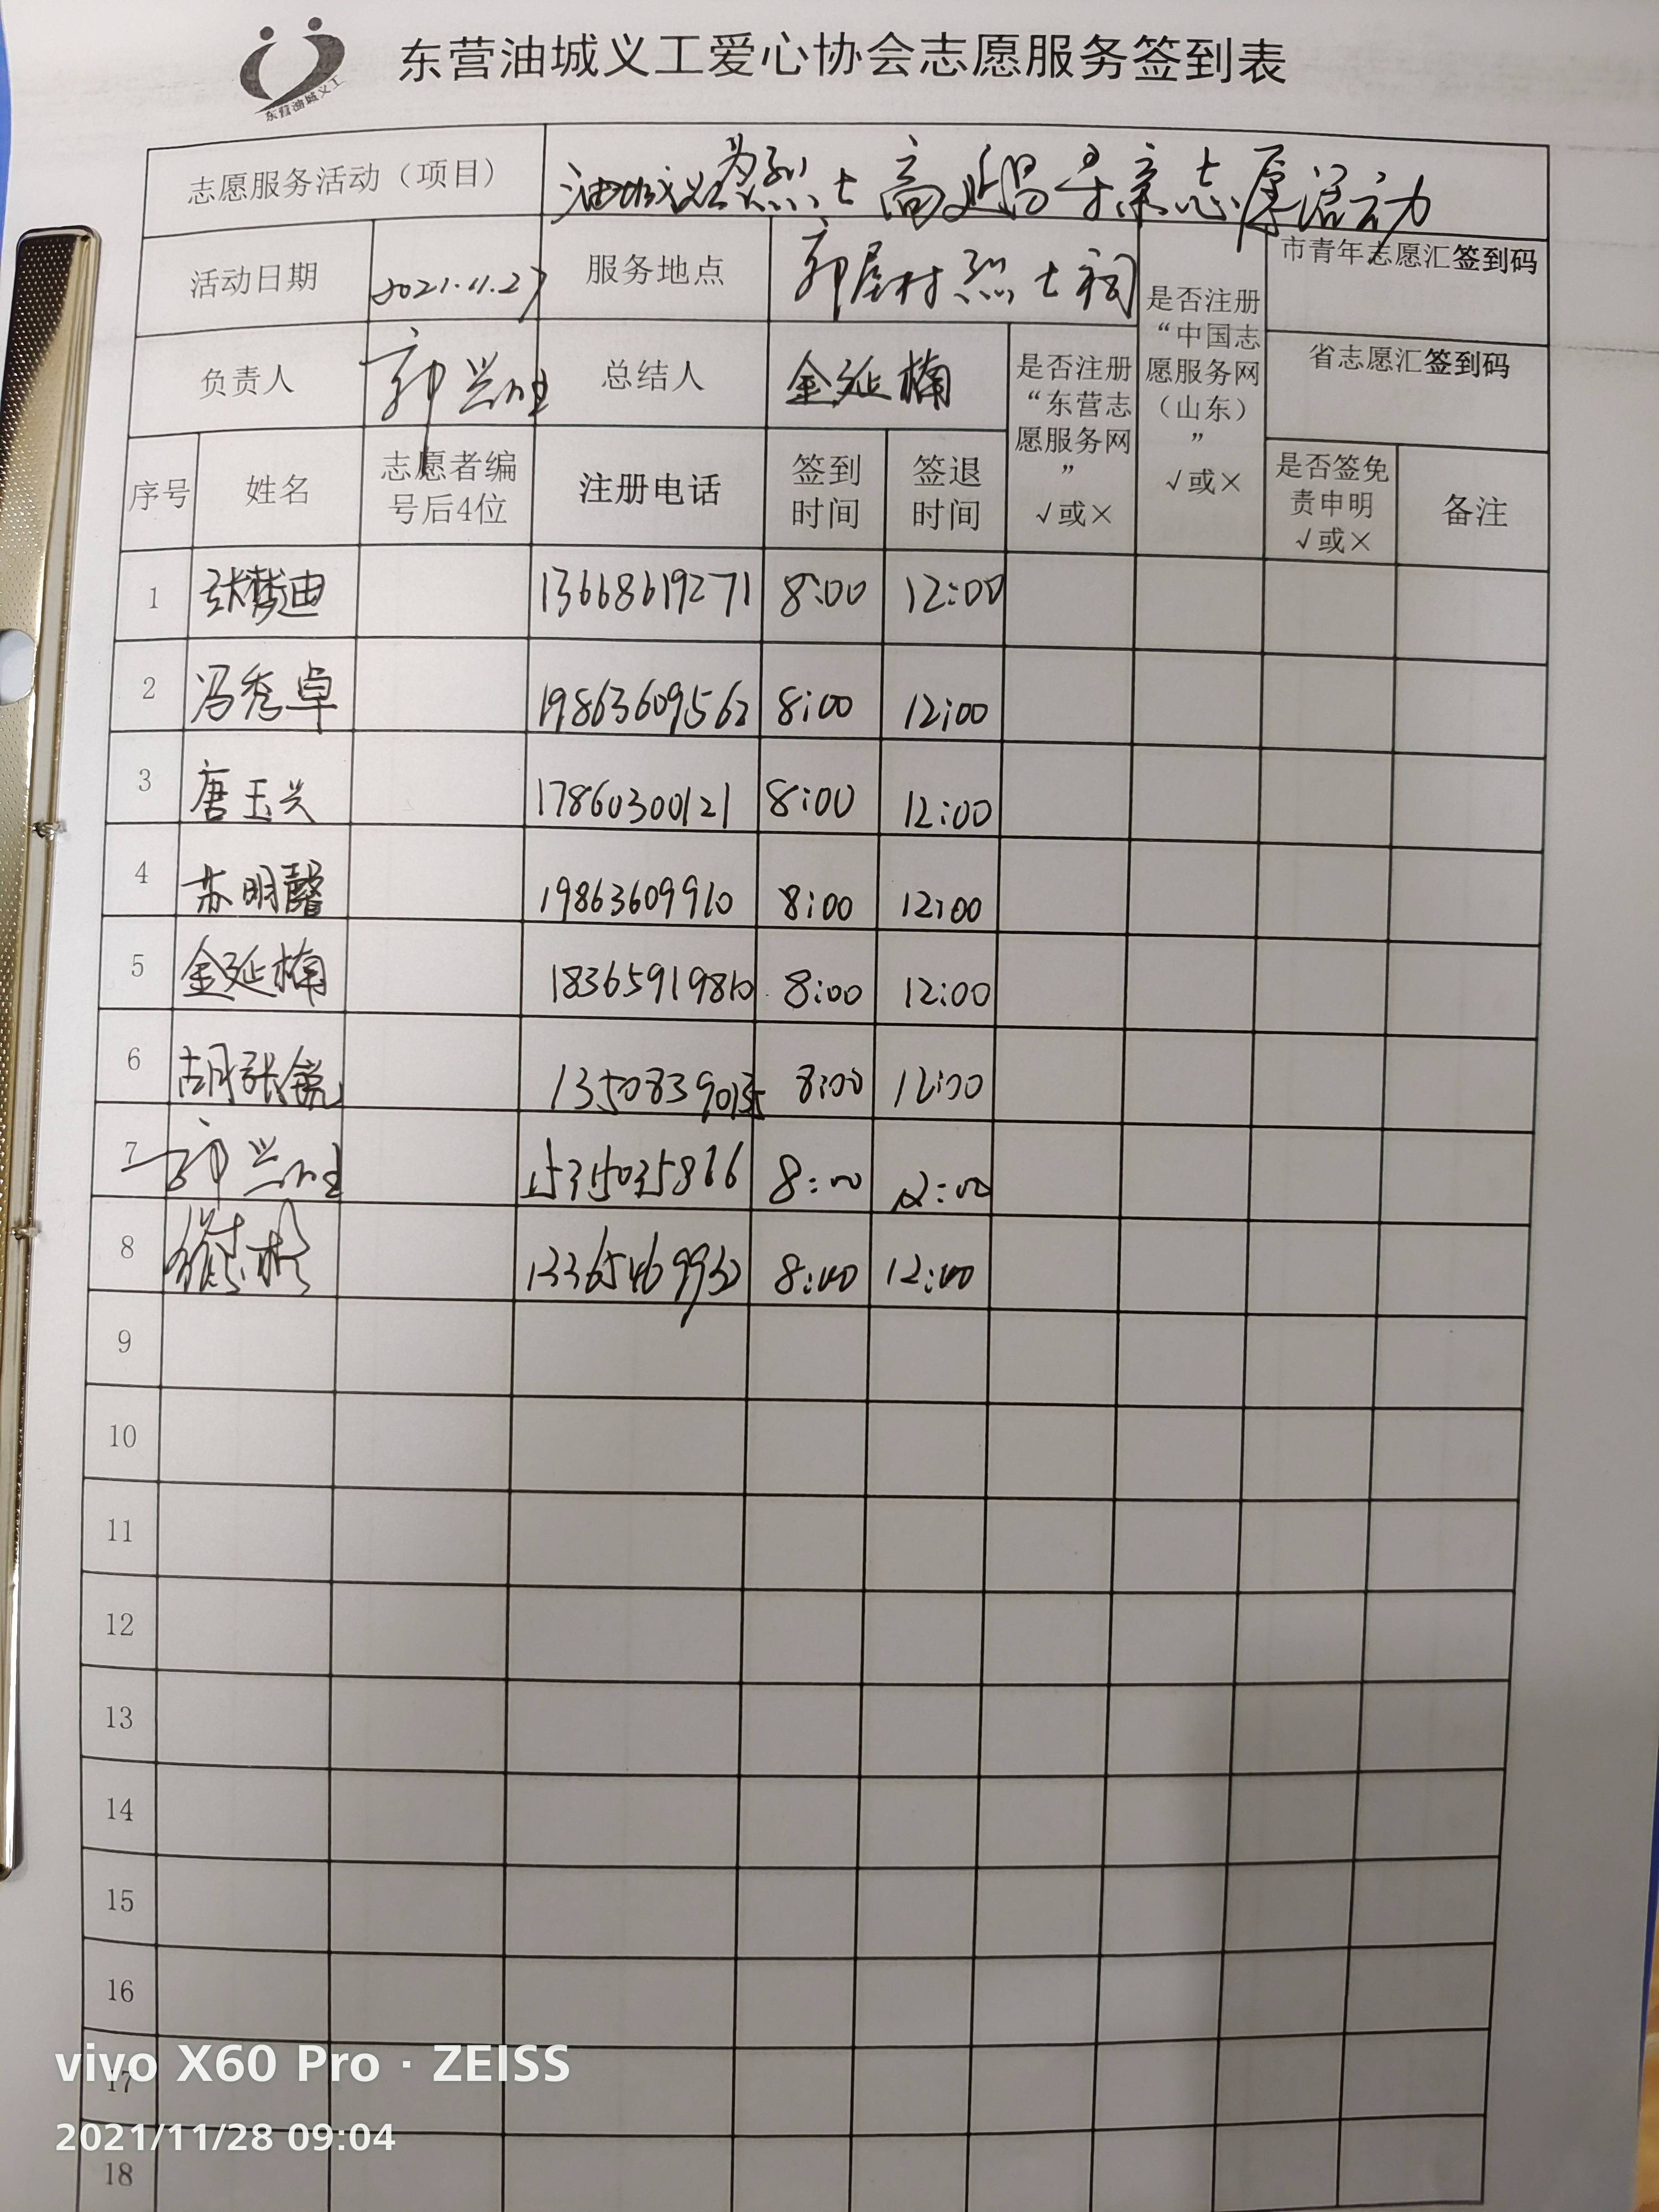 东营油城义工
东营油城义工爱心协会志愿服务签到表
志愿服务活动（项目） 油城义工为烈士高延昌寻亲志愿活动
活动日期 2021.11.27 服务地点 郭屋村烈士祠 市青年志愿汇签到码
负责人 郭兴胜 总结人 金延楠 省志愿汇签到码
是否注册
“东营志
愿服务网
”
√或×
是否注册
“中国志
愿服务网
（山东）
”
√或×
序号 姓名 志愿者编号后4位 注册电话 签到时间 签退时间 是否签免责申明√或× 备注
1 张梦迪 13668619271 8:00 12:00
2 冯秀卓 19863609562 8:00 12:00
3 唐玉兴 17860300121 8:00 12:00
4 苏明馨 19863609910 8:00 12:00
5 金延楠 18365919810 8:00 12:00
6 胡张锐 8:00 12:00
7 郭兴胜 8:00 12:00
8 13365469932 8:00 12:00
9
10
11
12
13
14
15
16
17
18
vivo X60 Pro · ZEISS
2021/11/28 09:04